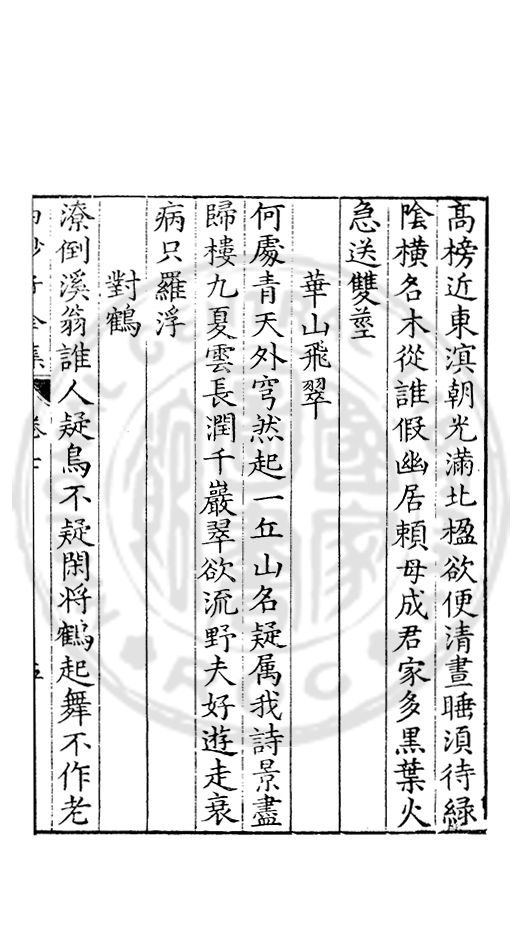 高榜近東滇朝光滿北楹欲便清晝睡須待緑
陰橫名木從誰假幽居賴母成君家多黑葉火
急送雙莖
華山飛翠
何處青天外穹然起一丘山名疑属我詩景盡
歸樓九夏雲長潤千巖翠欲流野夫好遊走衰
病只羅浮
對鶴
潦倒溪翁誰人疑鳥不疑閑将鶴起舞不作老
全集
卷七
五